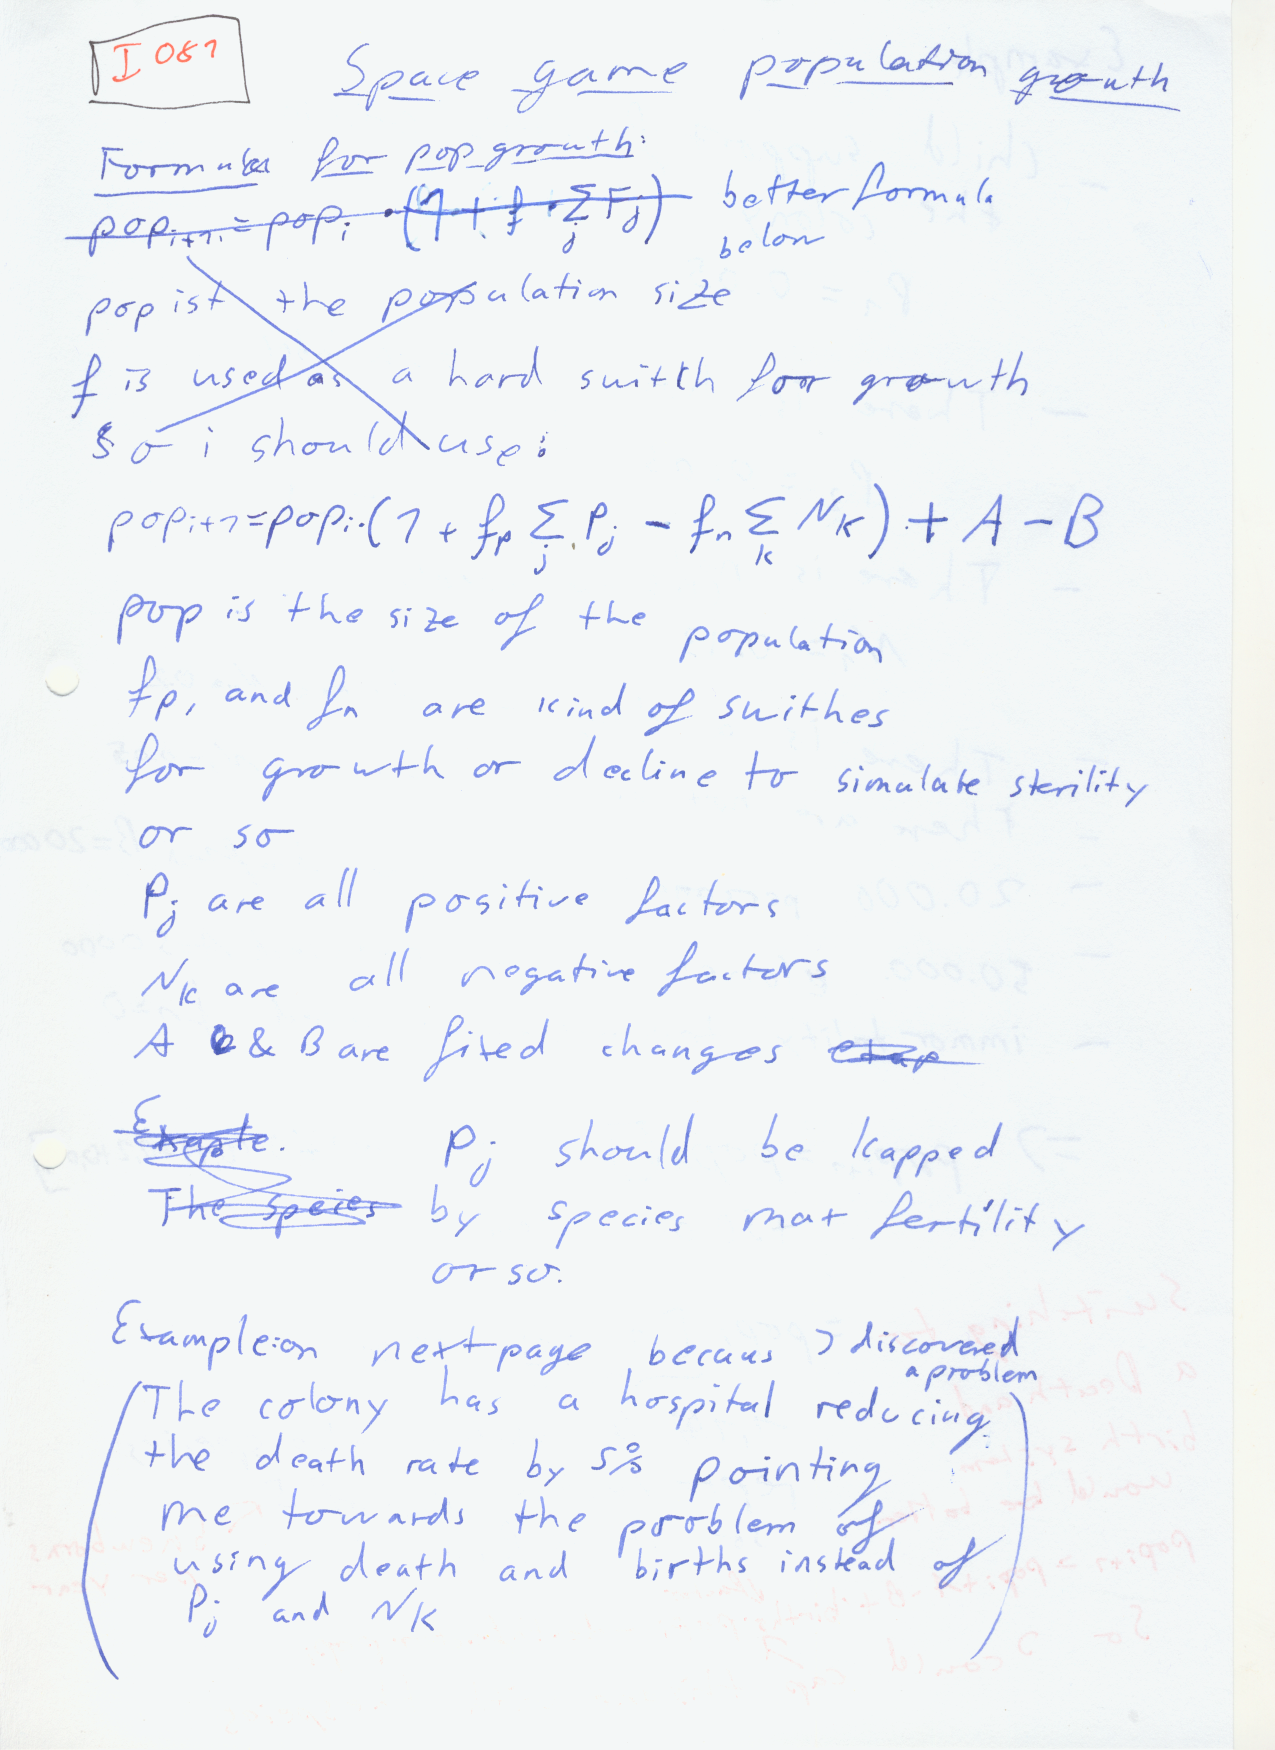 I 081
Space game population growth
Formulas for pop growth:
pop_{i+1} = pop_i · (1 + f · Σ_j F_j) better formula
below
pop ist the population size
f is used as a hard suitch foor growth
so i should use:
pop_{i+1} = pop_i · (1 + f_p Σ_j P_j - f_n Σ_k N_k) + A - B
pop is the size of the population
f_p, and f_n are kind of swithes
for growth or decline to simulate sterility
or so
P_j are all positive factors
N_k are all negative factors
A & B are fixed changes
Exaple. P_j should be kapped
The speies by species max fertility
or so.
Example:on next page becaus I discovered
a problem
(The colony has a hospital reducing
the death rate by 5% pointing
me towards the problem of
using death and births instead of
P_j and N_k)